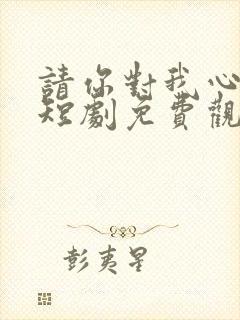 請你對我心
短劇免費觀
彭夷星